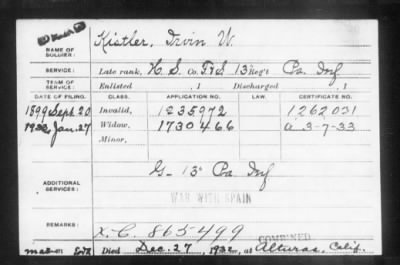 Dead
NAME OF SOLDIER: Kistler, Irvin W.
SERVICE: Late rank, H. S. Co. F&S 13 Reg't Pa. Inf
TERM OF SERVICE: Enlisted , 1 Discharged , 1
DATE OF FILING. CLASS. APPLICATION NO. LAW. CERTIFICATE NO.
1899 Sept. 20 Invalid, 1235972 1262031
1932, Jan. 27 Widow, 1730466 a 3-7-33
Minor,
ADDITIONAL SERVICES: G - 13" Pa Inf
WAR WITH SPAIN
REMARKS: X.C. 865499
COMBINED
Died Dec. 27, 1932, at Alturas, Calif.